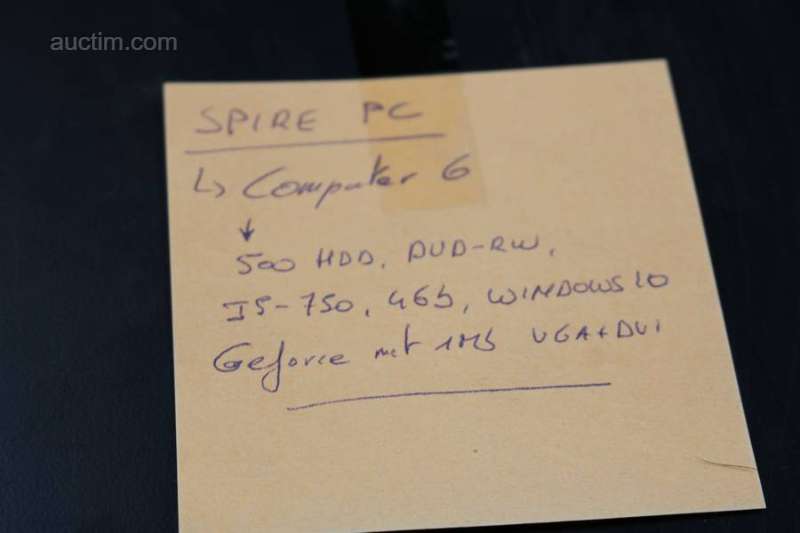 auctim.com
SPIRE PC
↳ Computer 6
↓
500 HDD, DVD-RW,
I5-750, 4Gb, WINDOWS 10
Geforce met 1Mb VGA+DVI